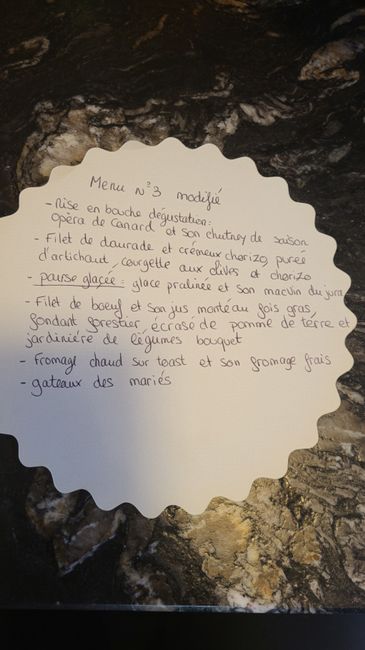 Menu N°3 modifié
- Mise en bouche dégustation:
opéra de canard et son chutney de saison
- Filet de daurade et crémeux chorizo pureé
d'artichaut, courgette aux olives et chorizo
- pause glaçée : glace pralinée et son macvin du jura
- Filet de boeuf et son jus monté au fois gras,
fondant forestier, écrasé de pomme de terre et
jardinière de légumes bouquet
- Fromage chaud sur toast et son fromage frais
- gateaux des mariés